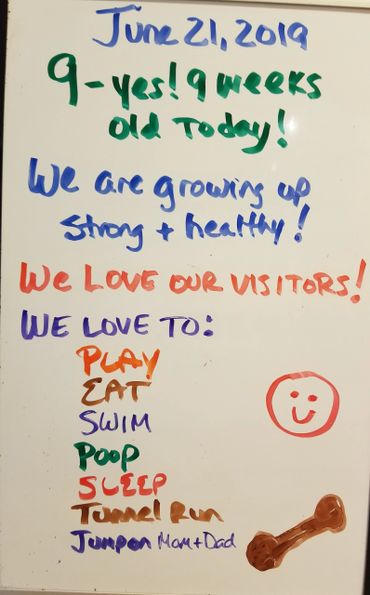 June 21, 2019
9-yes! 9 weeks
old Today!
We are growing up
strong + healthy!
We LOVE OUR VISITORS!
WE LOVE TO:
PLAY
EAT
SWIM
Poop
SLEEP
Tunnel Run
Jump on Mom + Dad